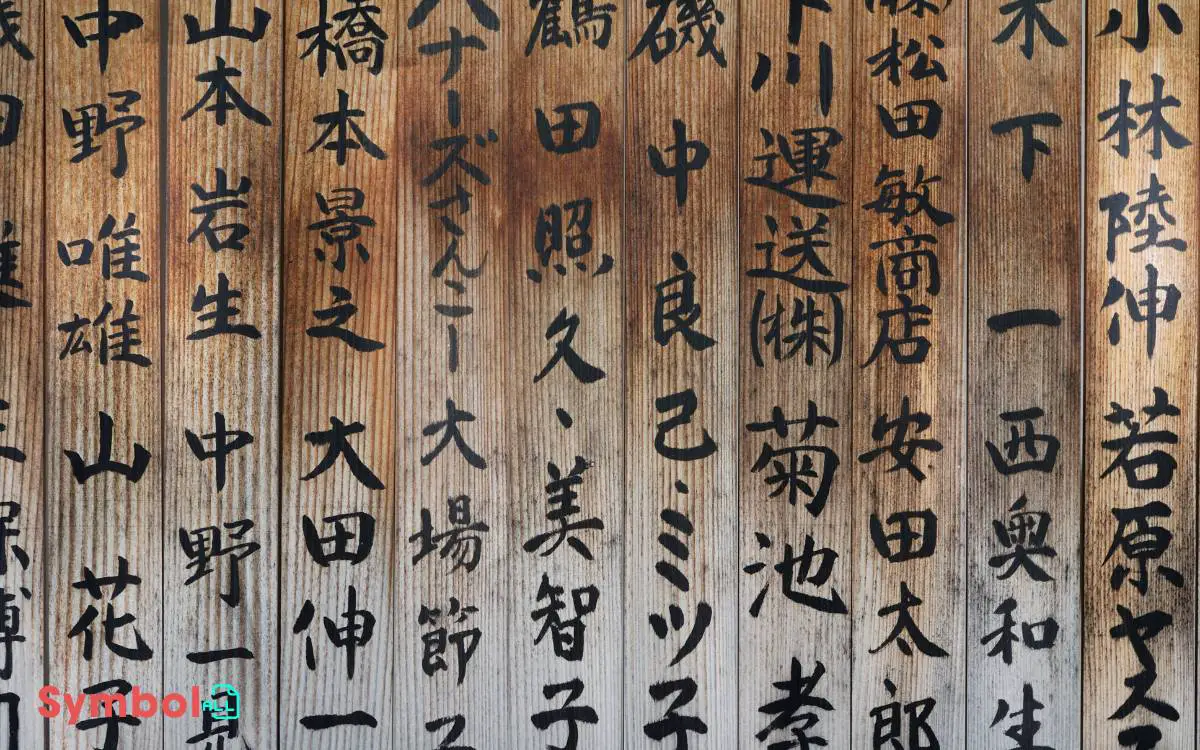 小林陸伸 若原ヤス
木下 一 西奥和生
㈱松田敏商店 安田太郎
下川運送㈱ 菊池 孝
磯中良己、ミツ子
鶴田照久、美智子
ハナーズさんこー 大場節子
橋本景之 大田伸一
山本岩生 中野一見
中野唯雄 山 花子
Symbol ALL